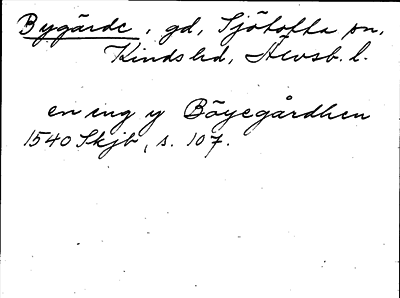 Bygärde, gd, Sjötofta sn,
Kinds hd, Älvsb. l.
en eng y Böyegårdhen
1540 Skjb, s. 107.